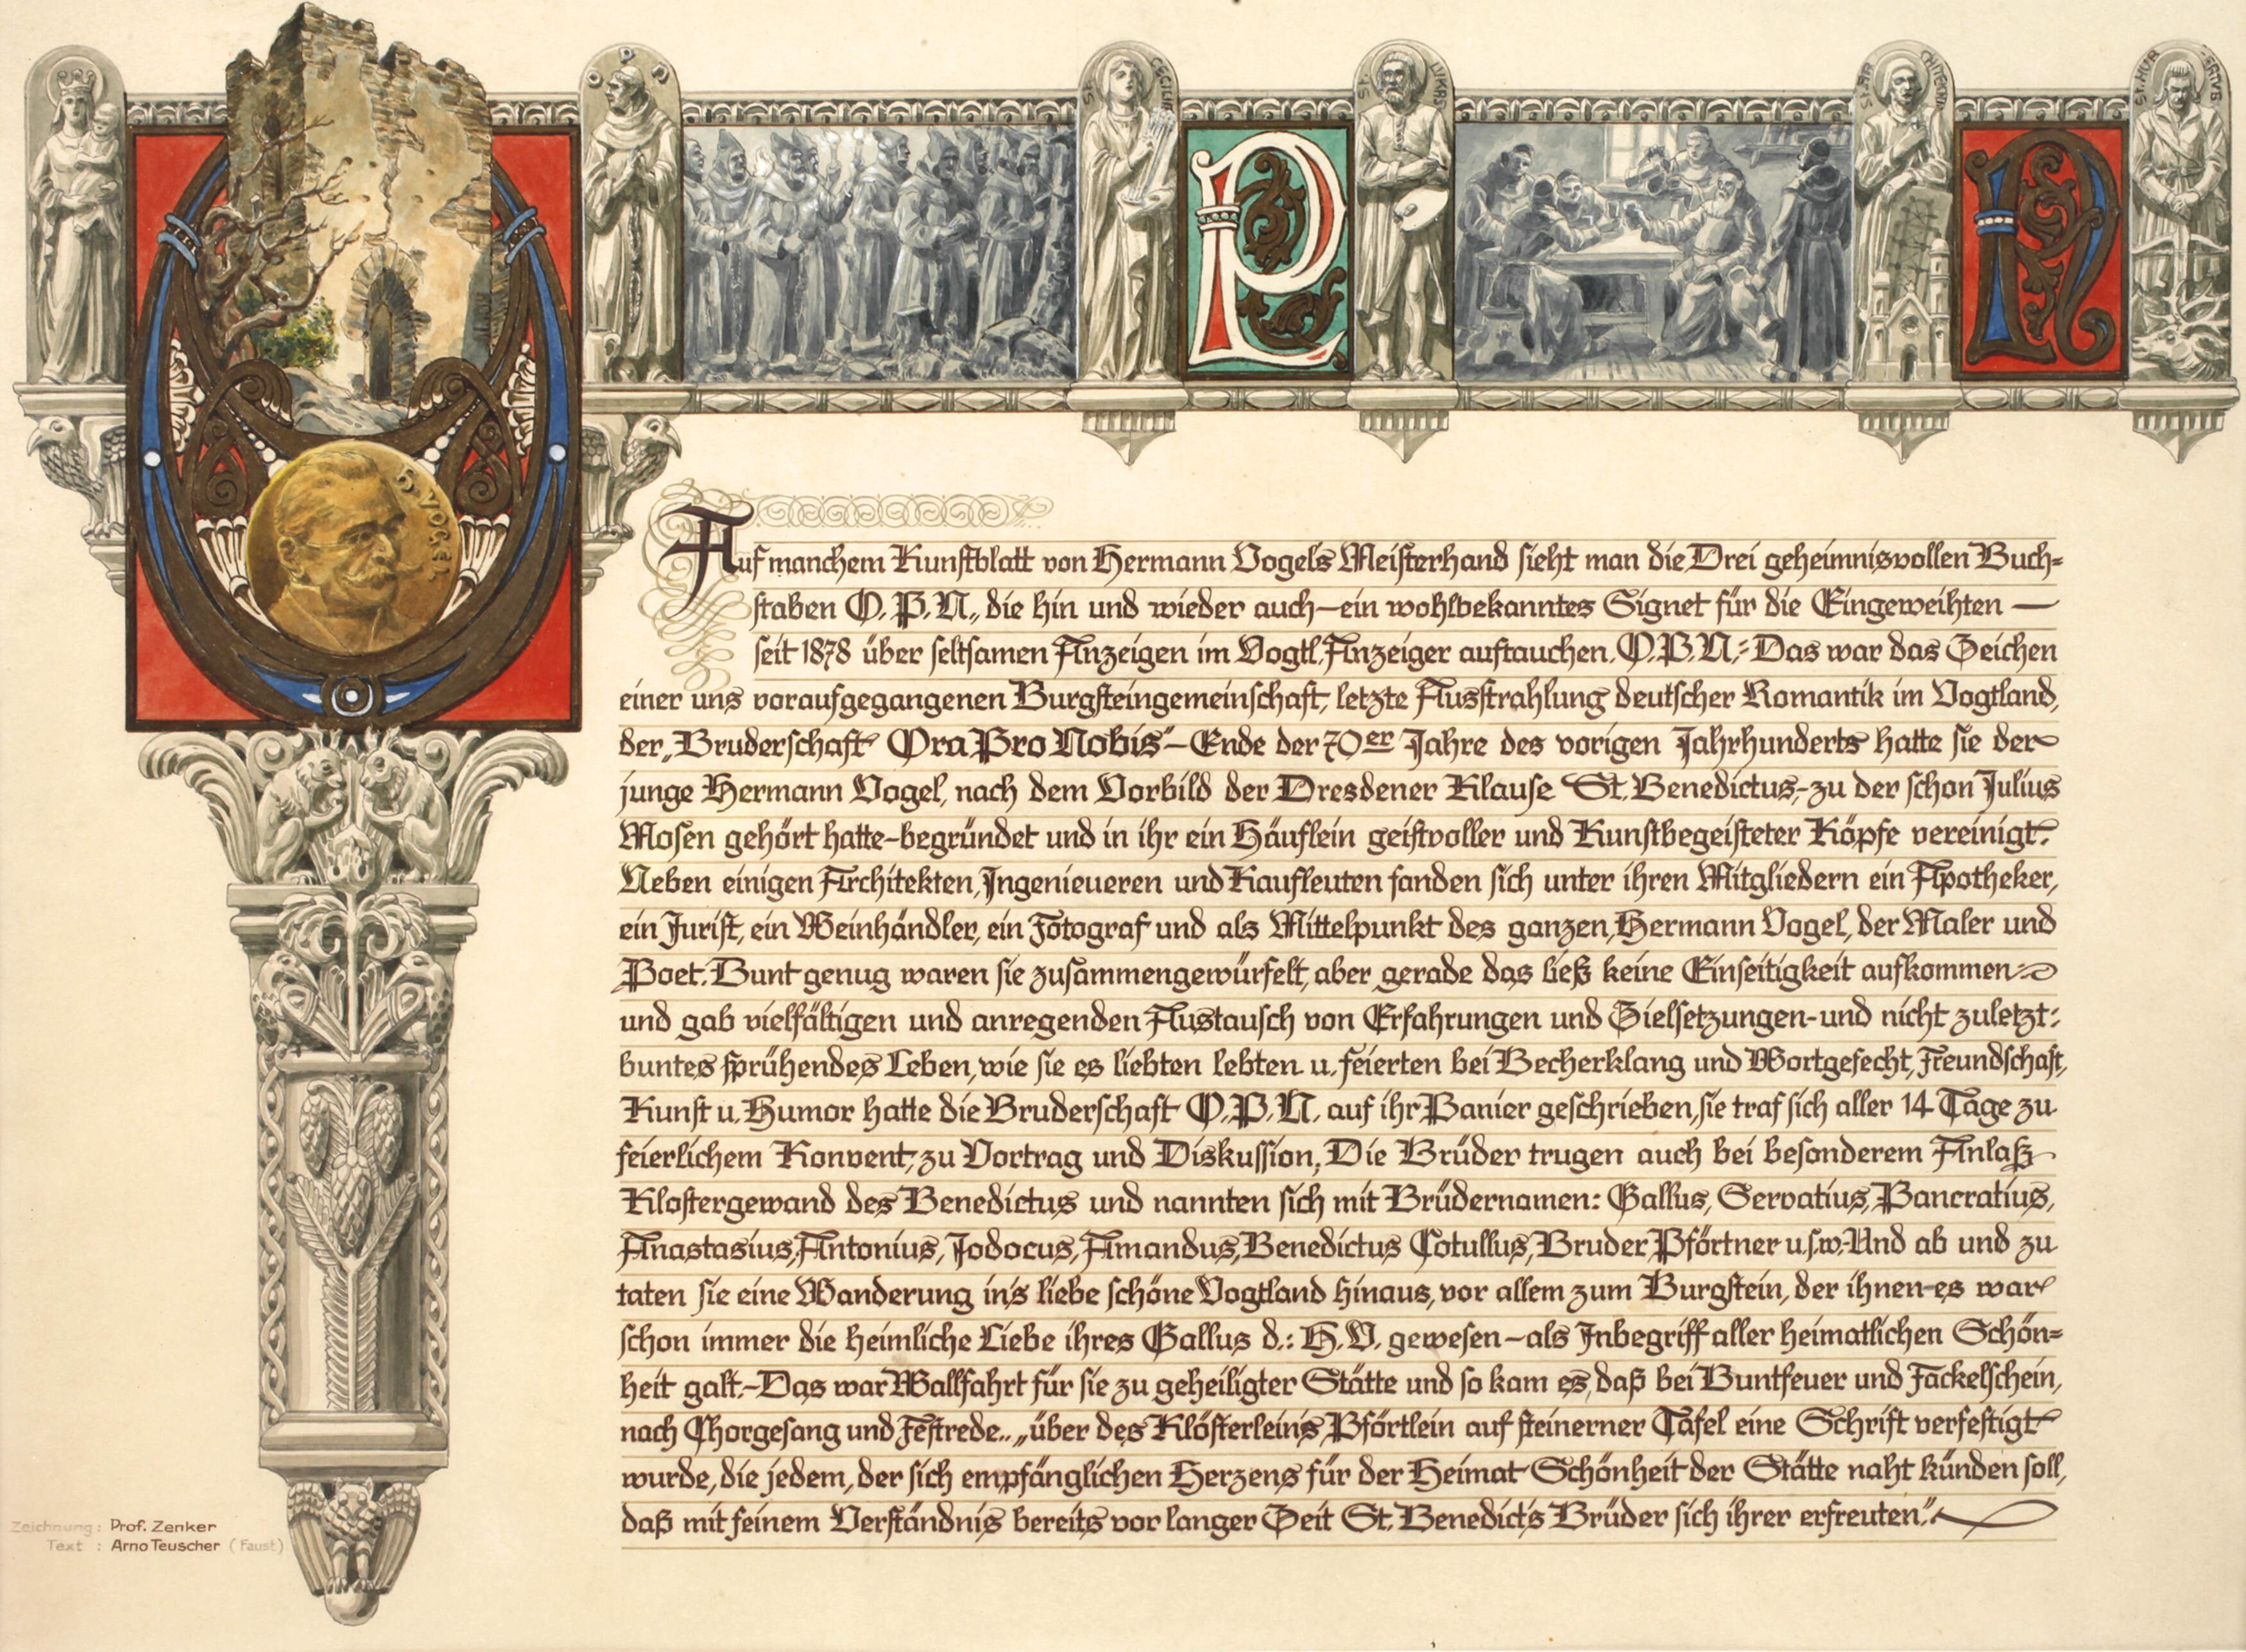 O P N
O D O
ST. CECILIA
ST. LVKAS
ST. AR CHITECTVS
ST. HVB ERTVS
H. VOGEL
Auf manchem Kunstblatt von Hermann Vogels Meisterhand sieht man die Drei geheimnisvollen Buch=
staben O. P. N., die hin und wieder auch – ein wohlbekanntes Signet für die Eingeweihten –
seit 1878 über seltsamen Anzeigen im Vogtl. Anzeiger auftauchen. O. P. N.:- Das war das Zeichen
einer uns voraufgegangenen Burgsteingemeinschaft, letzte Ausstrahlung deutscher Romantik im Vogtland,
der „Bruderschaft Ora Pro Nobis" – Ende der 70er Jahre des vorigen Jahrhunderts hatte sie der
junge Hermann Vogel, nach dem Vorbild der Dresdener Klause St. Benedictus,- zu der schon Julius
Mosen gehört hatte – begründet und in ihr ein Häuflein geistvoller und Kunstbegeisteter Köpfe vereinigt.
Neben einigen Architekten, Ingenieueren und Kaufleuten fanden sich unter ihren Mitgliedern ein Apotheker,
ein Jurist, ein Weinhändler, ein Fotograf und als Mittelpunkt des ganzen, Hermann Vogel, der Maler und
Poet. Bunt genug waren sie zusammengewürfelt, aber gerade das ließ keine Einseitigkeit aufkommen
und gab vielfältigen und anregenden Austausch von Erfahrungen und Zielsetzungen - und nicht zuletzt:
buntes sprühendes Leben, wie sie es liebten lebten u. feierten bei Becherklang und Wortgefecht, Freundschaft,
Kunst u. Humor hatte die Bruderschaft O. P. N. auf ihr Panier geschrieben, sie traf sich aller 14 Tage zu
feierlichem Konvent, zu Vortrag und Diskussion, Die Brüder trugen auch bei besonderem Anlaß
Klostergewand des Benedictus und nannten sich mit Brüdernamen: Gallus, Servatius, Pancratius,
Anastasius, Antonius, Jodocus, Amandus, Benedictus Cotullus, Bruder Pförtner u.s.w. Und ab und zu
taten sie eine Wanderung in's liebe schöne Vogtland hinaus, vor allem zum Burgstein, der ihnen – es war
schon immer die heimliche Liebe ihres Gallus d.: H. V. gewesen – als Inbegriff aller heimatlichen Schön=
heit galt. – Das war Wallfahrt für sie zu geheiligter Stätte und so kam es, daß bei Buntfeuer und Fackelschein,
nach Chorgesang und Festrede.. „über des Klösterlein's Pförtlein auf steinerner Tafel eine Schrift verfestigt
wurde, die jedem, der sich empfänglichen Herzens für der Heimat Schönheit der Stätte naht künden soll,
daß mit feinem Verständnis bereits vor langer Zeit St. Benedict's Brüder sich ihrer erfreuten."
Zeichnung : Prof. Zenker
Text : Arno Teuscher (Faust)